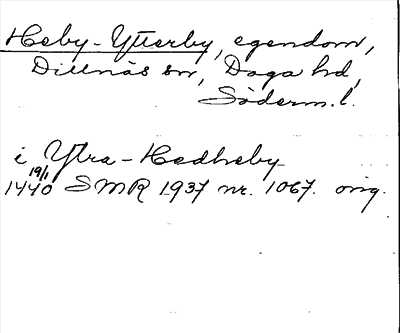 Heby-Ytterby, egendom,
Dillnäs sn, Daga hd,
Söderm. l.
i Ytra-Hedheby
19/1
1440 SMR 1937 nr. 1067. orig.